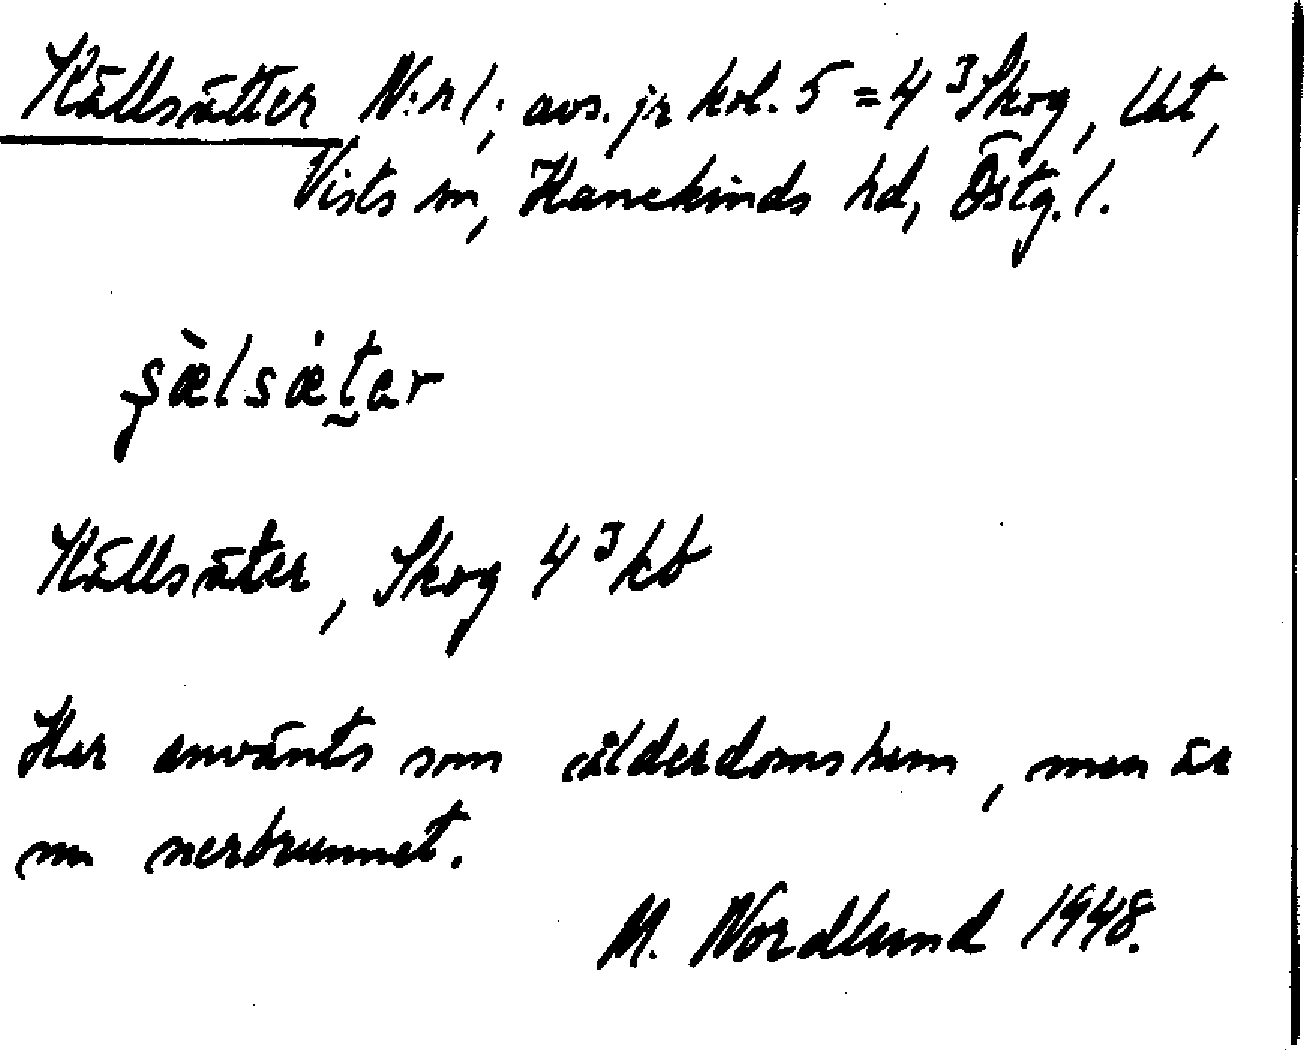 Källsätter N:r 1; avs. jr kol. 5 = 4 ³ Skog, Ut,
Vists sn, Hanekinds hd, Östg. l.
ʂæ̀lsæ̇t̰ar
Källsäter, Skog 4 ³ kb
Har använts som ålderdomshem, men är
nu nerbrunnet.
M. Nordlund 1948.